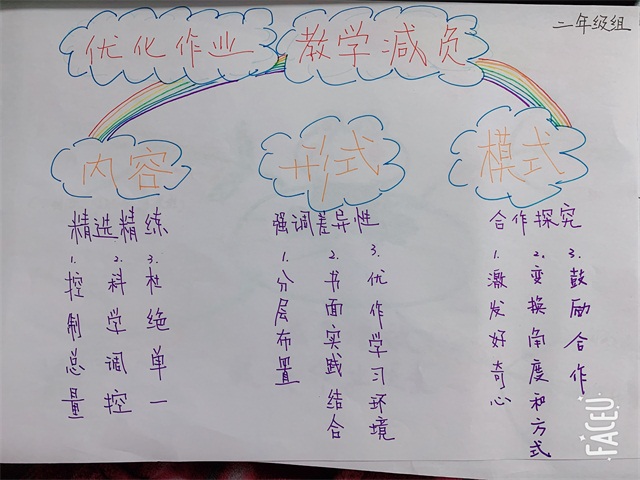 二年级组
优化作业 教学减负
内容
精选精练
1.控制总量
2.科学调控
3.杜绝单一
形式
强调差异性
1.分层布置
2.书面实践结合
3.优作学习环境
模式
合作探究
1.激发好奇心
2.变换角度和方式
3.鼓励合作
FACEU